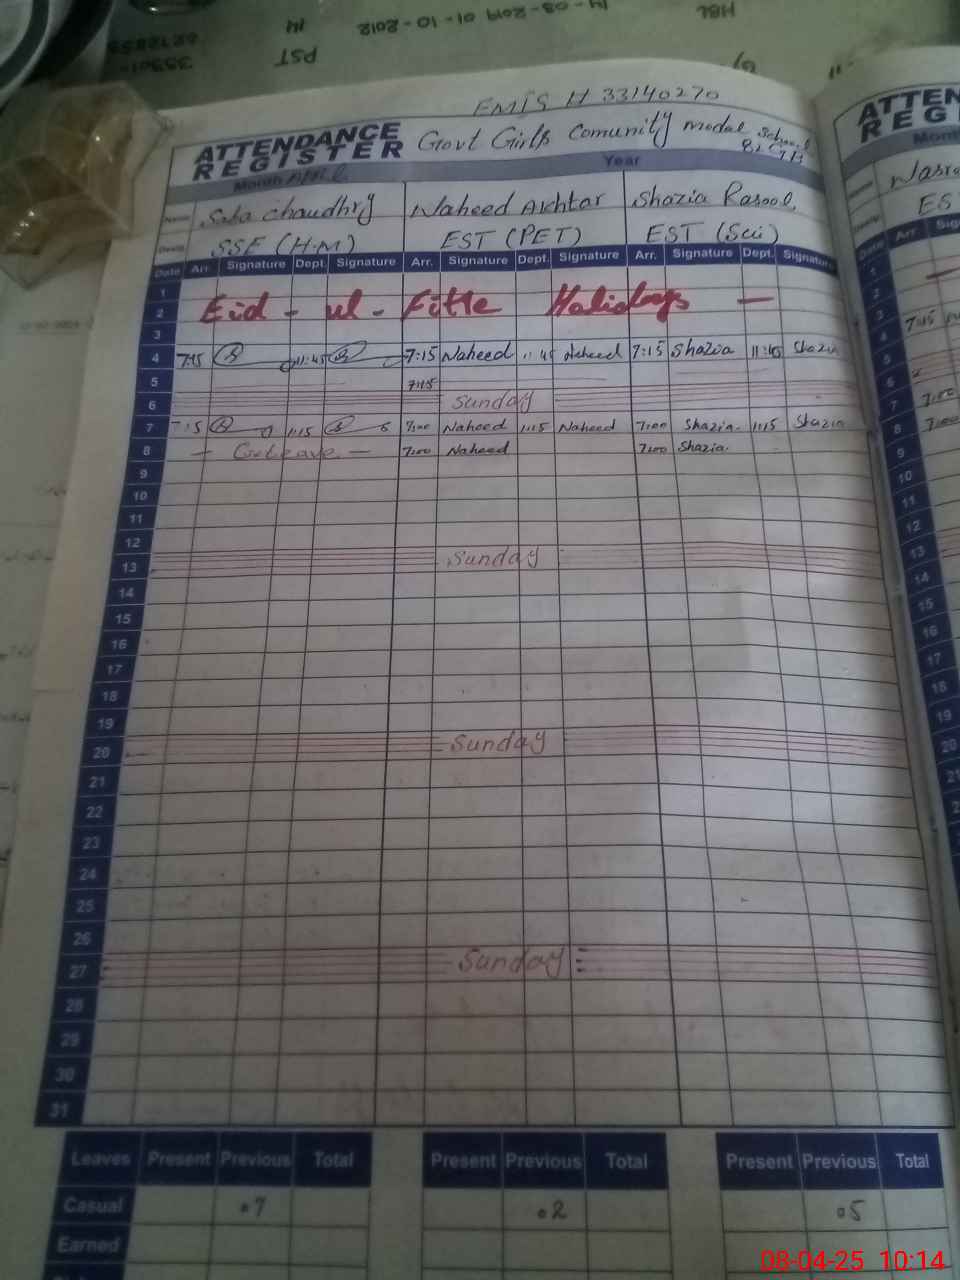 HBL
14 - 03 - 2019 01 - 10 - 2012
14
PST
EMIS # 33140270
ATTENDANCE
REGISTER
Govt Girls Comunity model School
Month April Year
Name Saba Chaudhry Naheed Akhtar Shazia Rasool
Desig. SSE (H.M) EST (PET) EST (Sci)
Date Arr. Signature Dept. Signature Arr. Signature Dept. Signature Arr. Signature Dept. Signature
1
2 Eid - ul - Fitle Holidays —
3
4 7:15 11:45 7:15 Naheed 11:45 Naheed 7:15 Shazia 11:45 Shazia
5 7:15
6 Sunday
7 7:15 1:15 7:00 Naheed 1:15 Naheed 7:00 Shazia 1:15 Shazia
8 — Leave — 7:00 Naheed 7:00 Shazia
9
10
11
12
13 Sunday
14
15
16
17
18
19
20 Sunday
21
22
23
24
25
26
27 Sunday
28
29
30
31
Leaves Present Previous Total Present Previous Total Present Previous Total
Casual 07 02 05
Earned
ATTEN
REGI
Month
Nasre
ES
Date Arr. Sig
1
2
3
7:15
5
6
7 7:00
8 7:00
9
10
11
12
13
14
15
16
17
18
19
20
21
08-04-25 10:14